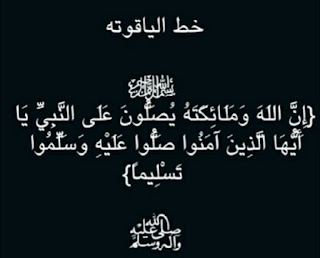 خط الياقوته
﷽
{إِنَّ اللهَ وَمَلَائِكَتَهُ يُصَلُّونَ عَلَى النَّبِيِّ يَا
أَيُّهَا الَّذِينَ آمَنُوا صَلُّوا عَلَيْهِ وَسَلِّمُوا
تَسْلِيماً}
صلى الله عليه وآله وسلم